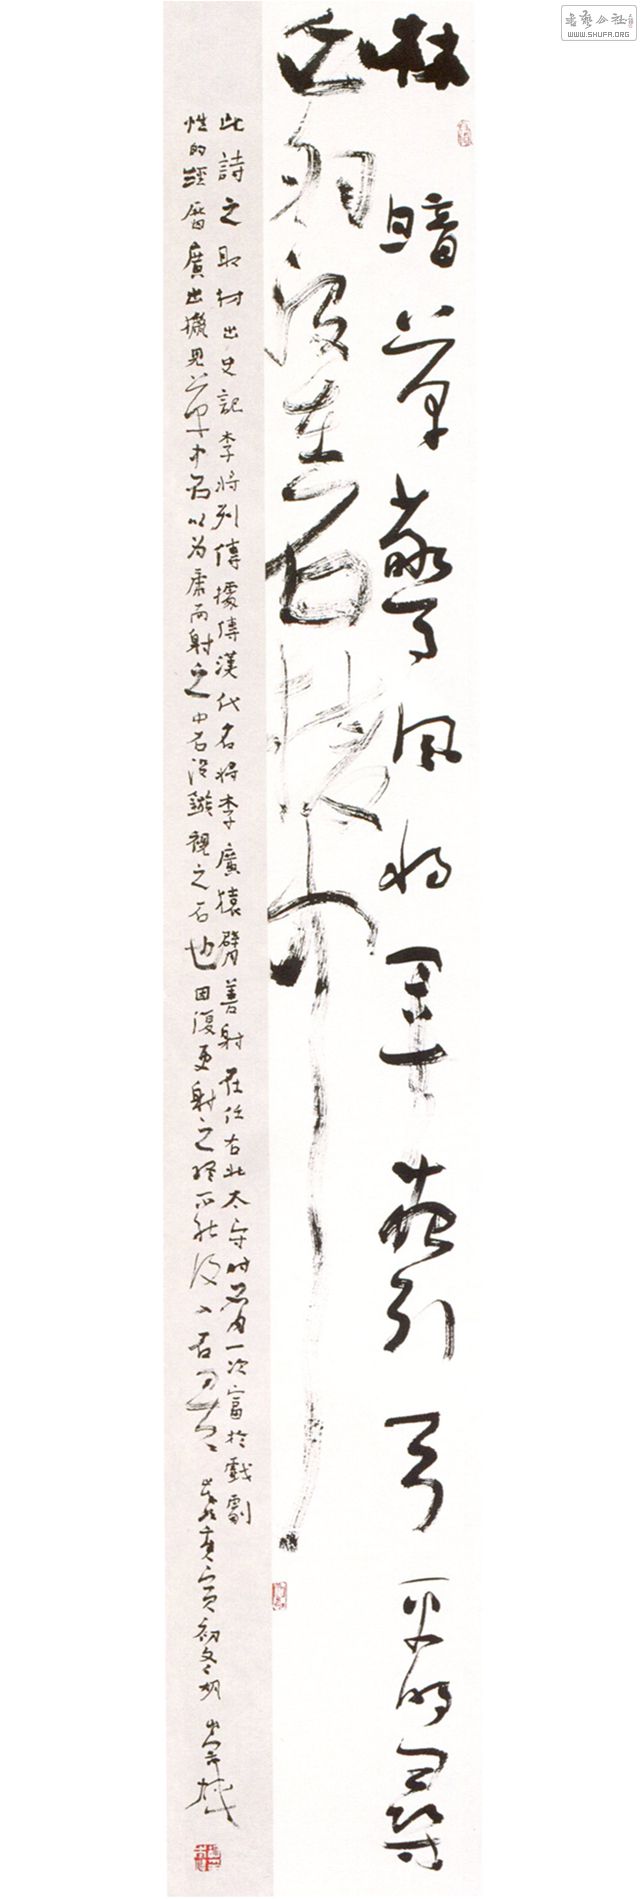 書藝公社
WWW.SHUFA.ORG
林暗草驚風將軍夜引弓平明尋
白羽没在石棱中
此詩之取材出史記李將列傳據傳漢代名將李廣猿臂善射在任右北太守時一次富於戲劇
性的經曆廣出獵見草中石以为虎而射之中石没鏃視之石也因復更射之終不能復入石矣 庚寅初冬